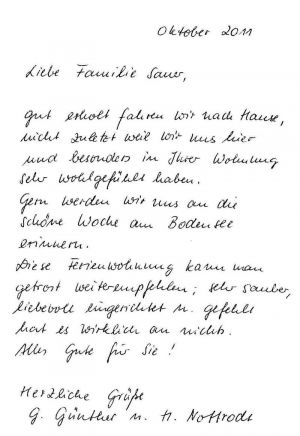 Oktober 2011
Liebe Familie Sauer,
gut erholt fahren wir nach Hause,
nicht zuletzt weil wir uns hier
und besonders in Ihrer Wohnung
sehr wohlgefühlt haben.
Gern werden wir uns an die
schöne Woche am Bodensee
erinnern.
Diese Ferienwohnung kann man
getrost weiterempfehlen; sehr sauber,
liebevoll eingerichtet u. gefehlt
hat es wirklich an nichts.
Alles Gute für Sie!
Herzliche Grüße
G. Günther u. H. Nottrodt